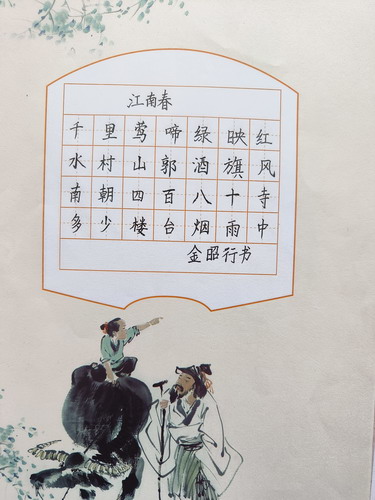 江南春
千里莺啼绿映红
水村山郭酒旗风
南朝四百八十寺
多少楼台烟雨中
金昭行书